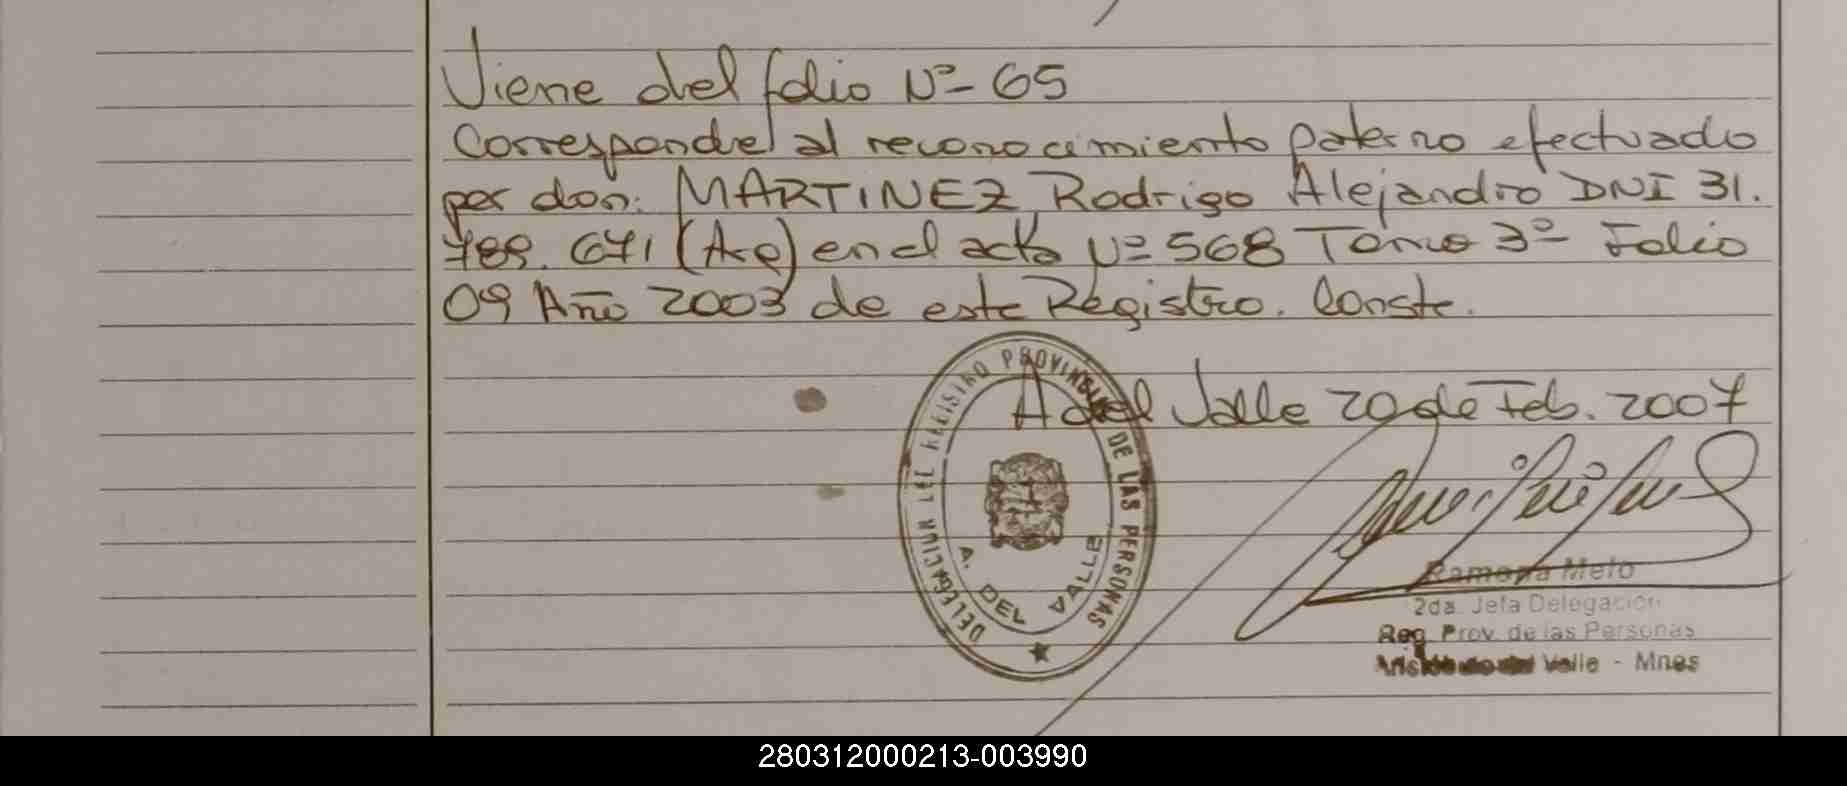 Viene del folio Nº 65
Corresponde al reconocimiento paterno efectuado
por don: MARTINEZ Rodrigo Alejandro DNI 31.
789. 671 (Arg) en el acta Nº 568 Tomo 3º Folio
09 Año 2003 de este Registro. Conste.
A del Valle 20 de Feb. 2007
DELEGACION DEL REGISTRO PROVINCIAL DE LAS PERSONAS
A. DEL VALLE
Ramona Melo
2da. Jefa Delegación
Reg. Prov. de las Personas
Valle - Mnes
280312000213-003990